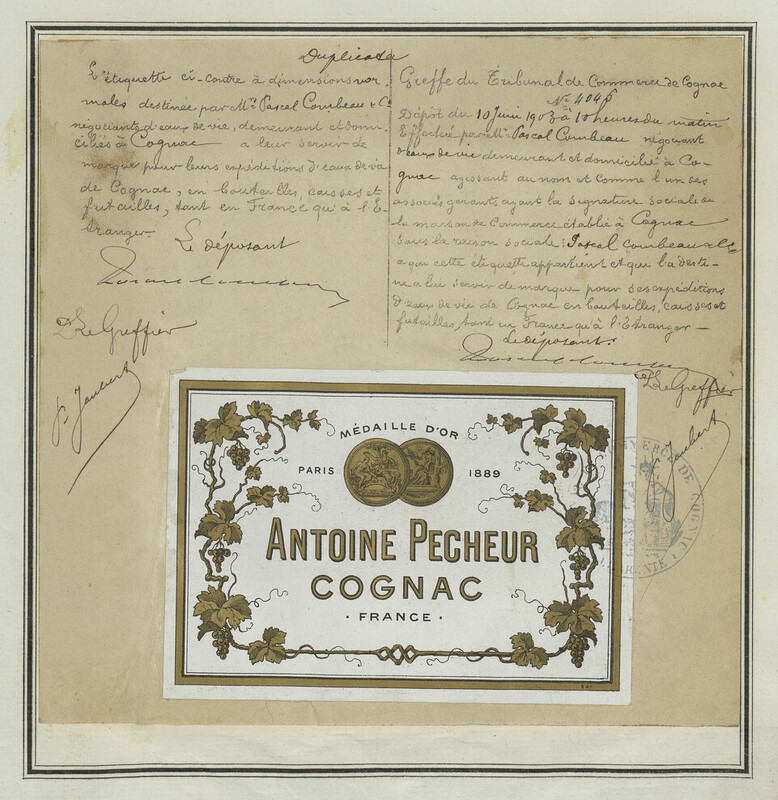 Duplicata
L'étiquette ci-contre à dimensions nor
males destinée par Mrs Pascal Combeau & Cie
négociants d'eaux de vie, demeurant et domi-
ciliés à Cognac a leur servir de
marque pour leurs expéditions d'eaux de vie
de Cognac, en bouteilles, caisses et
futailles, tant en France qu'à l'E-
tranger.
Le déposant
Pascal Combeau
P. Le Greffier
Joubert
Greffe du Tribunal de Commerce de Cognac
No 4046
Dépôt du 10 Juin 1903 à 10 heures du matin
Effectué par Mr Pascal Combeau négociant
d'eaux de vie demeurant et domicilié à Co-
gnac agissant au nom et comme l'un des
associés gérants ayant la signature sociale de
la maison de Commerce établie à Cognac
sous la raison sociale: Pascal Combeau & Cie
a qui cette étiquette appartient et qui l'a desti-
née a lui servir de marque pour ses expéditions
d'eaux de vie de Cognac en bouteilles, caisses et
futailles, tant en France qu'à l'Etranger —
Le déposant.
Pascal Combeau
P. Le Greffier
Joubert
MÉDAILLE D'OR
PARIS 1889
ANTOINE PECHEUR
COGNAC
· FRANCE ·
COMMERCE DE COGNAC